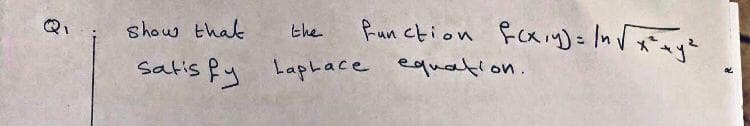 Q1 : show that the function f(x,y) = ln √x²+y²
satisfy Laplace equation.